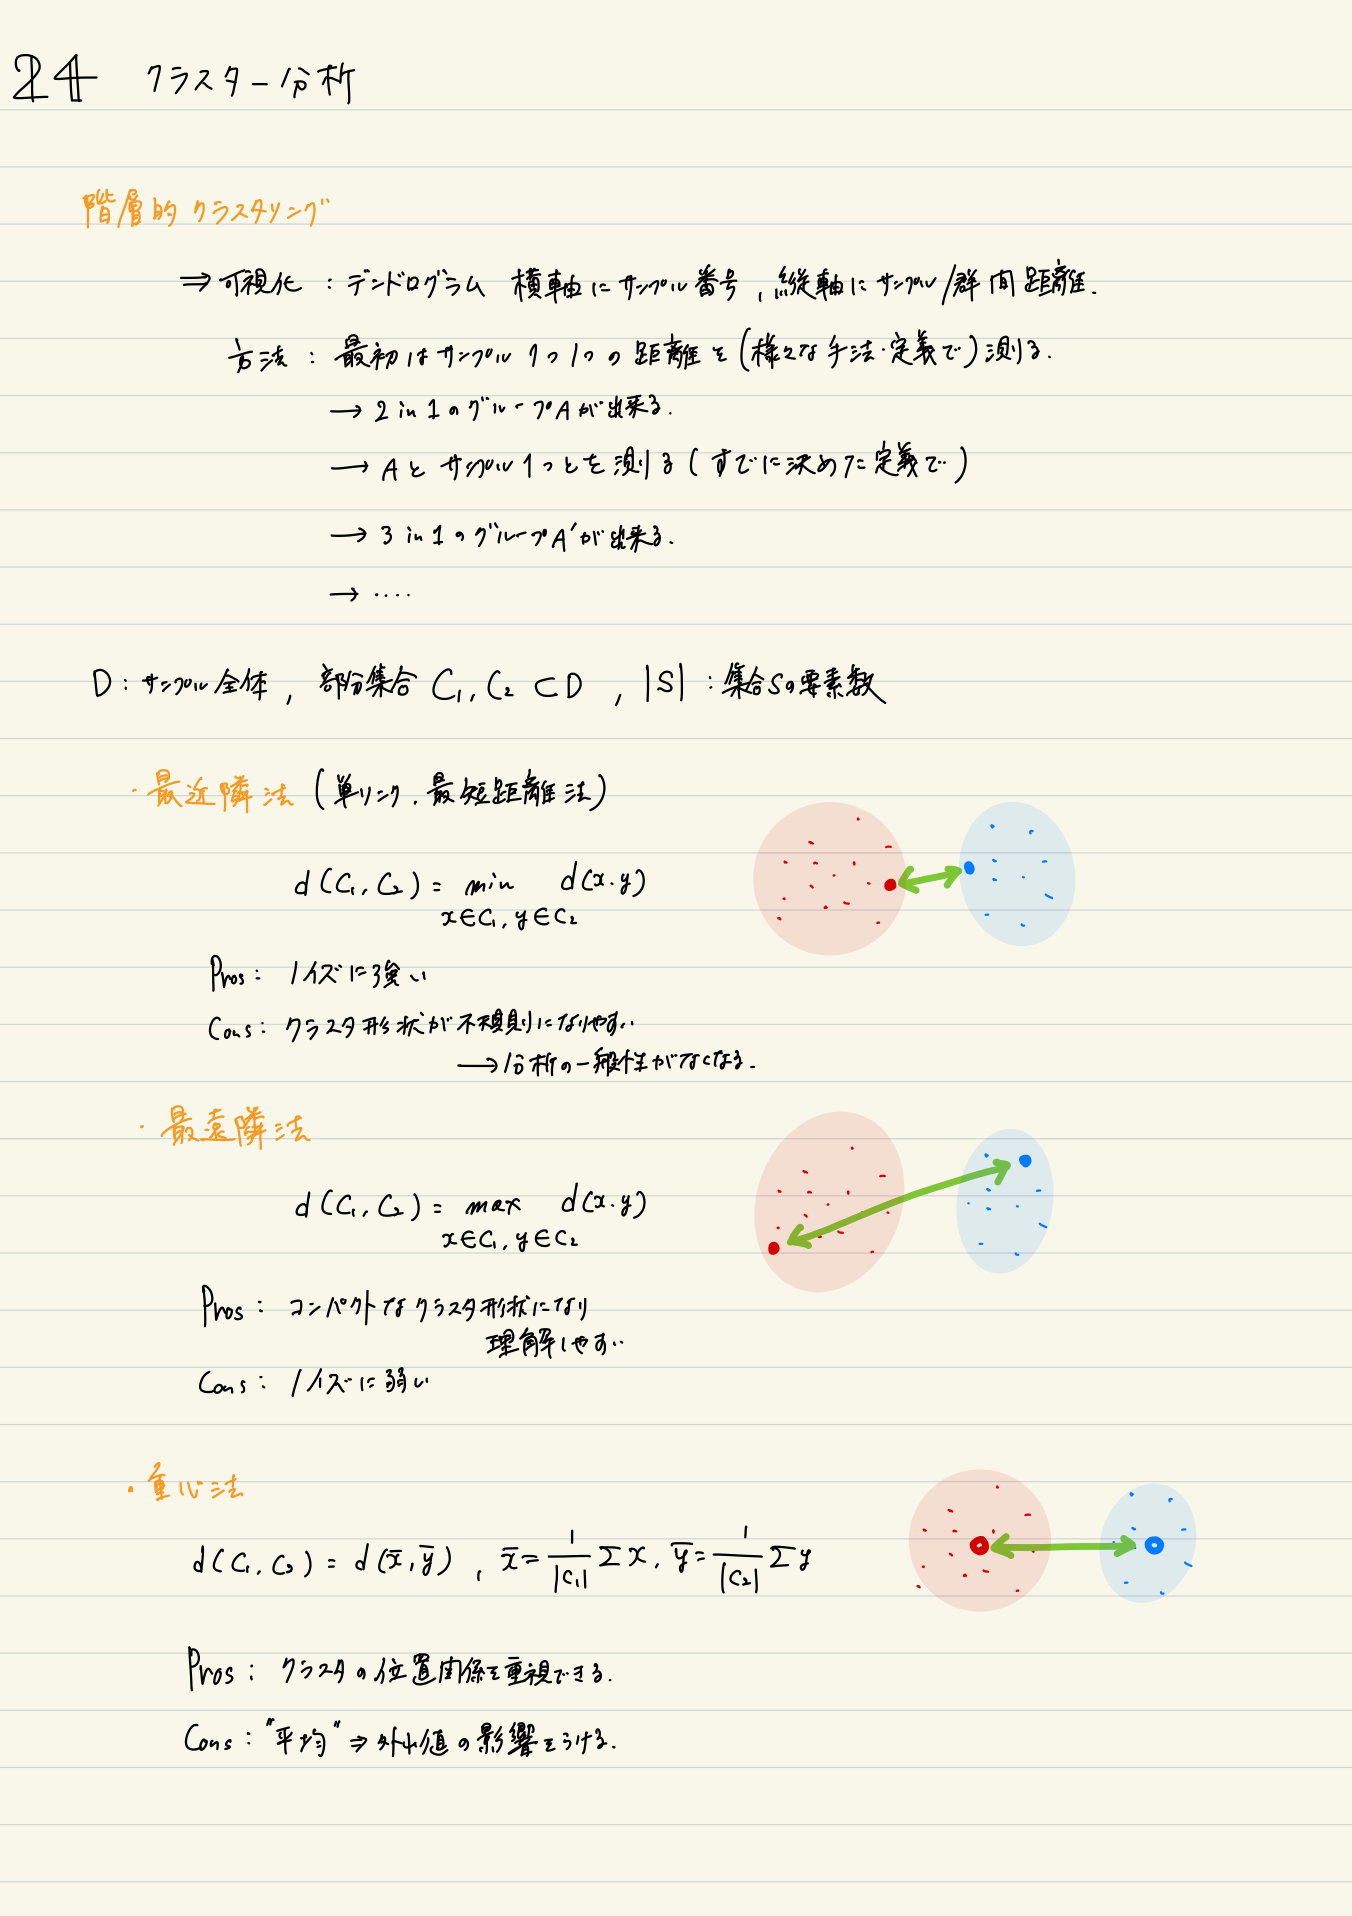 24 クラスター分析
階層的クラスタリング
⇒ 可視化 : デンドログラム 横軸にサンプル番号, 縦軸にサンプル/群間距離.
方法 : 最初はサンプル1つ1つの距離を(様々な手法・定義で)測る.
→ 2 in 1のグループAが出来る.
→ Aとサンプル1つとを測る(すでに決めた定義で)
→ 3 in 1のグループA'が出来る.
→ ....
D : サンプル全体, 部分集合 C₁, C₂ ⊂ D , |S| : 集合Sの要素数
・最近隣法 (単リンク, 最短距離法)
d(C₁, C₂) = min d(x, y)
x∈C₁, y∈C₂
Pros : ノイズに強い
Cons : クラスタ形状が不規則になりやすい
→ 分析の一般性がなくなる.
・最遠隣法
d(C₁, C₂) = max d(x, y)
x∈C₁, y∈C₂
Pros : コンパクトなクラスタ形状になり
理解しやすい
Cons : ノイズに弱い
・重心法
d(C₁, C₂) = d(x̄, ȳ) , x̄ = 1/|C₁| Σx, ȳ = 1/|C₂| Σy
Pros : クラスタの位置関係を重視できる.
Cons : "平均" ⇒ 外れ値の影響をうける.